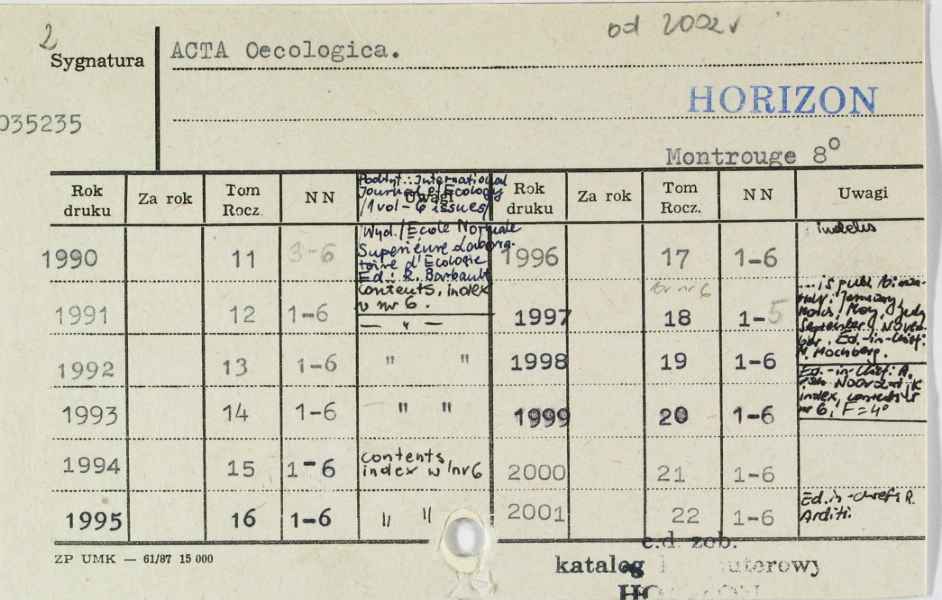 2 od 2002 r
Sygnatura ACTA Oecologica.
HORIZON
035235
Montrouge 8°
Rok druku Za rok Tom Rocz. NN Uwagi Rok druku Za rok Tom Rocz. NN Uwagi
Podtyt.: International
Journal of Ecology
/1 vol - 6 issues/
Wyd./Ecole Normale
Supérieure Labora-
toire d'Ecologie
Ed.: R. Barbault
contents, index
w nr 6.
1990 11 3-6
1991 12 1-6 — " —
1992 13 1-6 " "
1993 14 1-6 " "
1994 15 1-6 contents
index w nr 6
1995 16 1-6 " "
1996 17 1-6 index
nr 6
1997 18 1-5
... is publ. bimon-
thly: January,
March, May, July
September, Novem-
ber. Ed.-in-chief:
M. Hochberg.
1998 19 1-6
Ed.-in-Chief: A.
van Noordwijk
index, contents w
nr 6, F=4°
1999 20 1-6
2000 21 1-6
2001 22 1-6 Ed.in-chief: R.
Arditi.
ZP UMK — 61/87 15 000
c.d. zob.
katalog uterowy